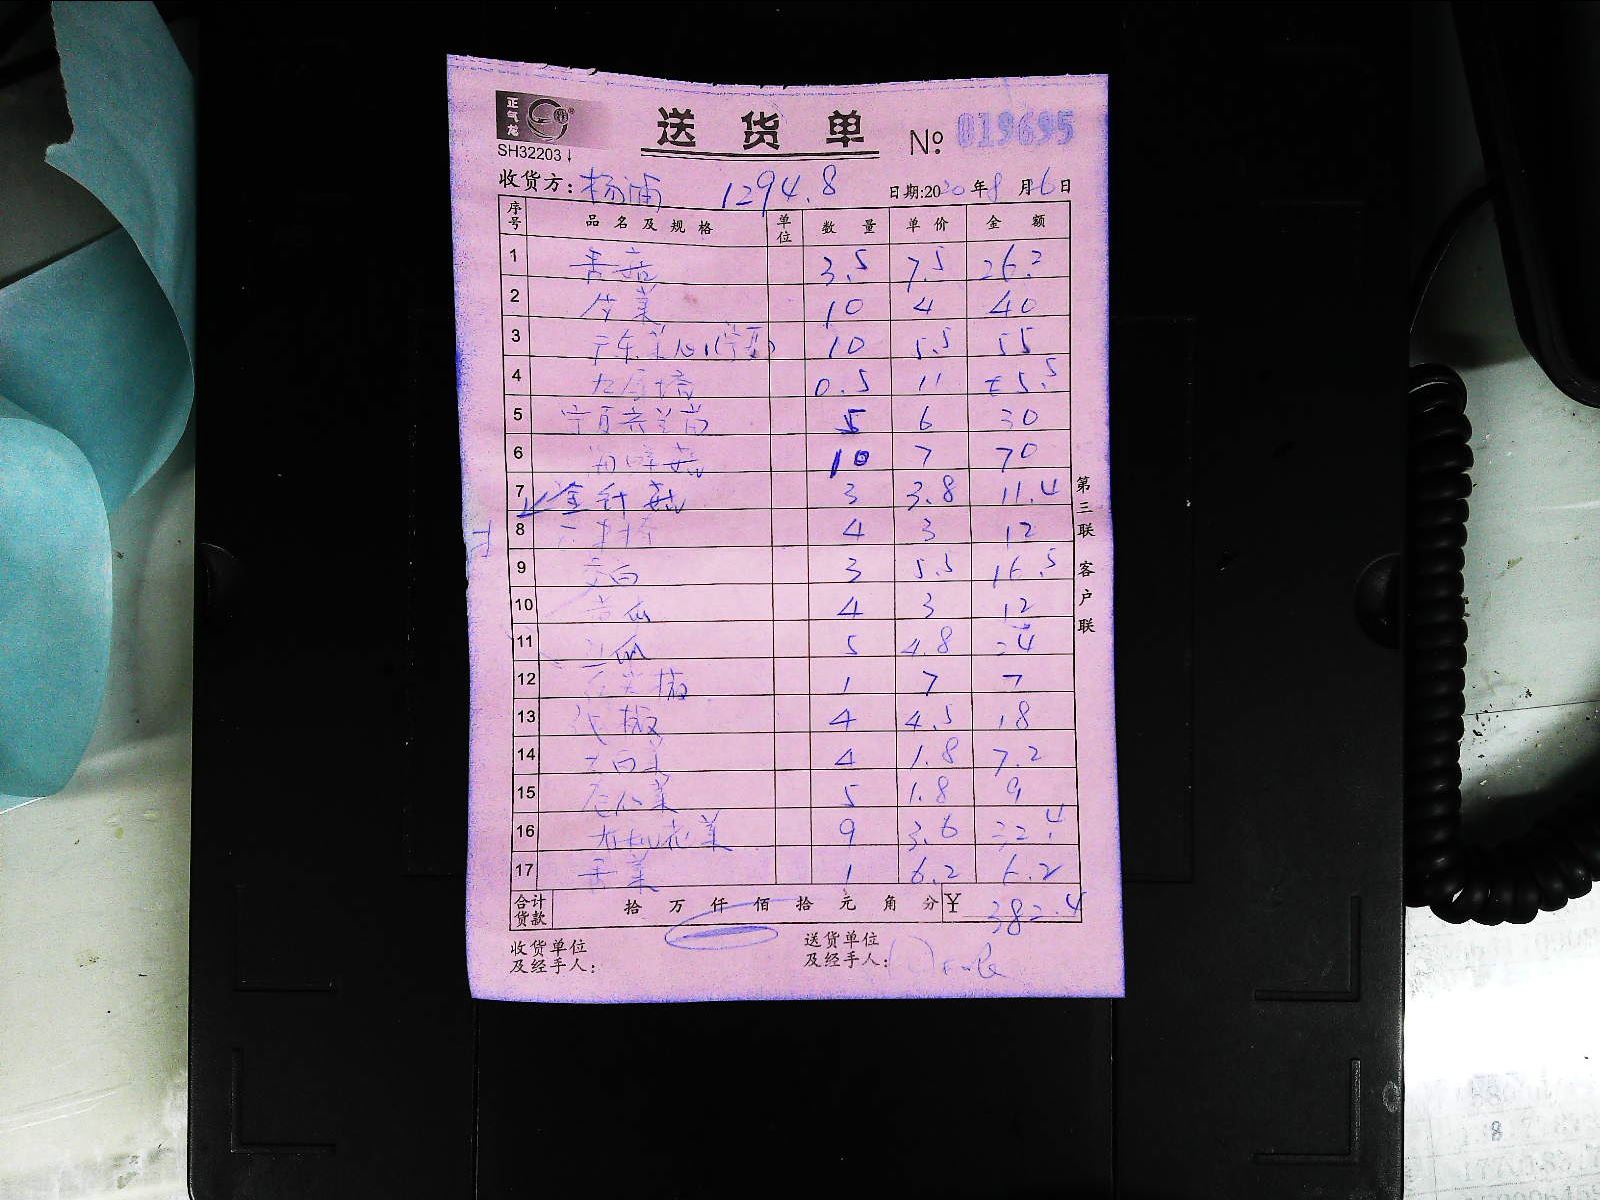 正气龙
送货单 № 019695
SH32203
收货方: 杨浦 1294.8 日期:2020年8月26日
序号 品名及规格 单位 数量 单价 金额
1 香菇 3.5 7.5 26.2
2 生菜 10 4 40
3 广东菜心 10 5.5 55
4 九层塔 0.5 11 5.5
5 宁夏芥兰苗 5 6 30
6 海鲜菇 10 7 70
7 金针菇 3 3.8 11.4
8 4 3 12
9 茭白 3 5.5 16.5
10 苦瓜 4 3 12
11 瓜 5 4.8 24
12 红尖椒 1 7 7
13 椒 4 4.5 18
14 4 1.8 7.2
15 菜 5 1.8 9
16 有机花菜 9 3.6 32.4
17 香菜 1 6.2 6.2
合计货款 拾 万 仟 佰 拾 元 角 分 ¥ 382.4
收货单位及经手人:
送货单位及经手人:
第三联 客户联